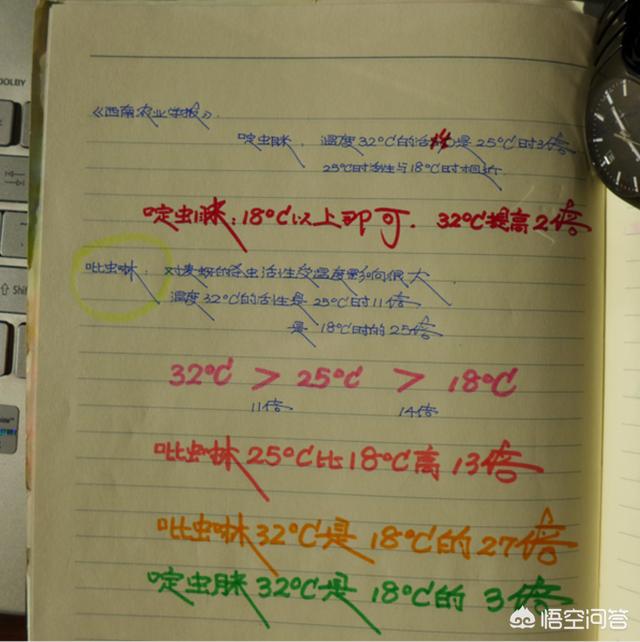 DOLBY
Shift
《西南农业学报》.
啶虫脒. 温度32℃的活性是25℃时3倍.
25℃时活性与18℃时相近.
啶虫脒:18℃以上即可. 32℃提高2倍
吡虫啉: 对麦蚜的杀虫活性受温度影响很大
温度32℃的活性是25℃时11倍
是18℃时的25倍
32℃ > 25℃ > 18℃
11倍 14倍
吡虫啉25℃比18℃高13倍
吡虫啉32℃是18℃的27倍
啶虫脒32℃是18℃的 3倍
悟空问答